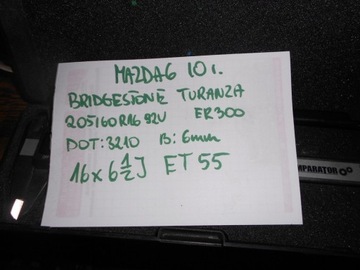 MAZDA6 10r.
BRIDGESTONE TURANZA
205/60R16 92V ER300
DOT:3210 B: 6mm
16x6 1/2J ET 55
MPARATOR